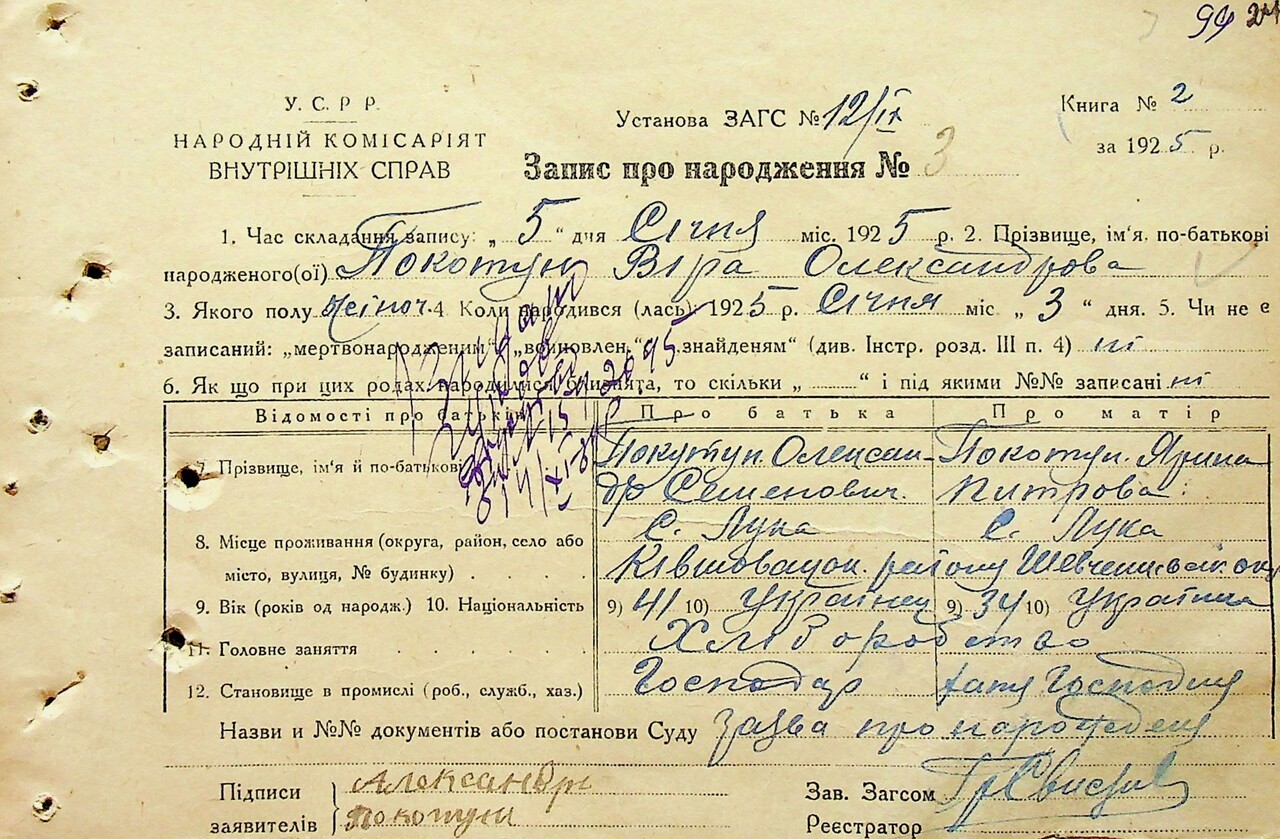 94
У.С.Р.Р.
НАРОДНІЙ КОМІСАРІЯТ
ВНУТРІШНІХ СПРАВ
Установа ЗАГС № 12/IX
Книга № 2
за 1925 р.
Запис про народження № 3
1. Час складання запису: „ 5 “ дня Січня міс. 1925 р. 2. Прізвище, ім'я, по-батькові
народженого(ої) Покотун Віра Олександрова
3. Якого полу жіноч. 4 Коли народився (лась): 1925 р. Січня міс „ 3 “ дня. 5. Чи не є
записаний: „мертвонароджений“, „вᴏиновлен.“ „знайденям“ (див. Інстр. розд. III п. 4) ні
6. Як що при цих родах народилися близнята, то скільки „ “ і під якими №№ записані ні
Відомості про батьків
Про батька
Про матір
7. Прізвище, ім'я й по-батькові
Покутун Олексан-
др Семенович.
Покотун Ярина
Питрова
8. Місце проживання (округа, район, село або
місто, вулиця, № будинку)
с. Лука
с. Лука
району
9. Вік (років од народж.) 10. Національність
9) 41 10) Українец
9) 34 10) Українка
11. Головне заняття
Хліборобство
12. Становище в промислі (роб., служб., хаз.)
Господар
Назви и №№ документів або постанови Суду заява про народження
Підписи
заявителів
Александр
Покотун
Зав. Загсом
Реєстратор